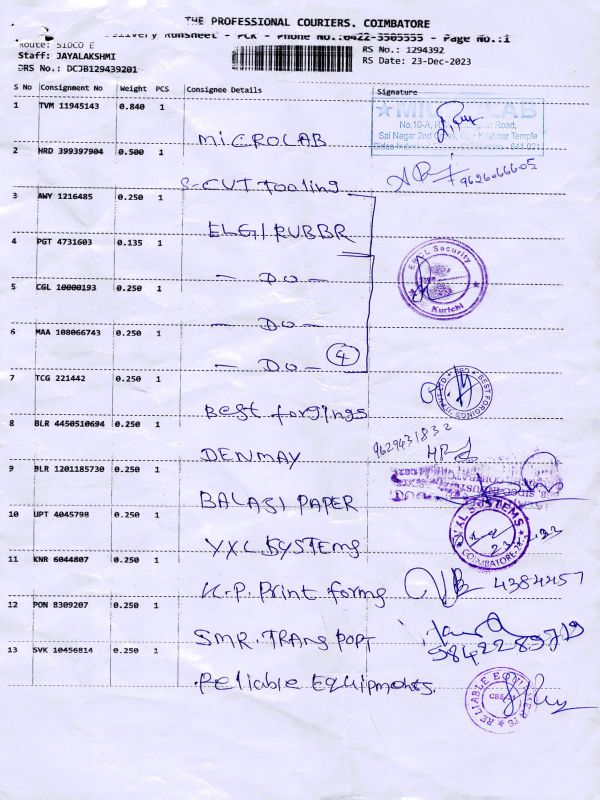 THE PROFESSIONAL COURIERS, COIMBATORE
Delivery Runsheet - PCK - Phone No.:0422-3505555 - Page No.:1
Route: SIDCO E
Staff: JAYALAKSHMI
DRS No.: DCJB129439201
RS No.: 1294392
RS Date: 23-Dec-2023
S No Consignment No Weight PCS Consignee Details Signature
1 TVM 11945143 0.840 1
MICROLAB
No.10-A,
Road,
Sai Nagar 2nd
Temple
641 021
2 NRD 399397904 0.500 1
S-CUT tooling
9626066605
3 AWY 1216485 0.250 1
ELGI RUBBR
4 PGT 4731603 0.135 1
- DO -
Security
Kurichi
5 CGL 10000193 0.250 1
- DO -
6 MAA 108066743 0.250 1
- DO - 4
7 TCG 221442 0.250 1
Best forgings
BEST FORGINGS
8 BLR 4450510694 0.250 1
DENMAY
9629431832
9 BLR 1201185730 0.250 1
BALAJI PAPER
10 UPT 4045798 0.250 1
VXL SYSTEMS
VXL SYSTEMS
COIMBATORE-21
11 KNR 6044807 0.250 1
K.P. Print forms
4384457
12 PON 8309207 0.250 1
SMR. TRANSPORT
9842289719
13 SVK 10456814 0.250 1
Reliable Equipments.
RELIABLE EQUIPMENTS
CBE-21